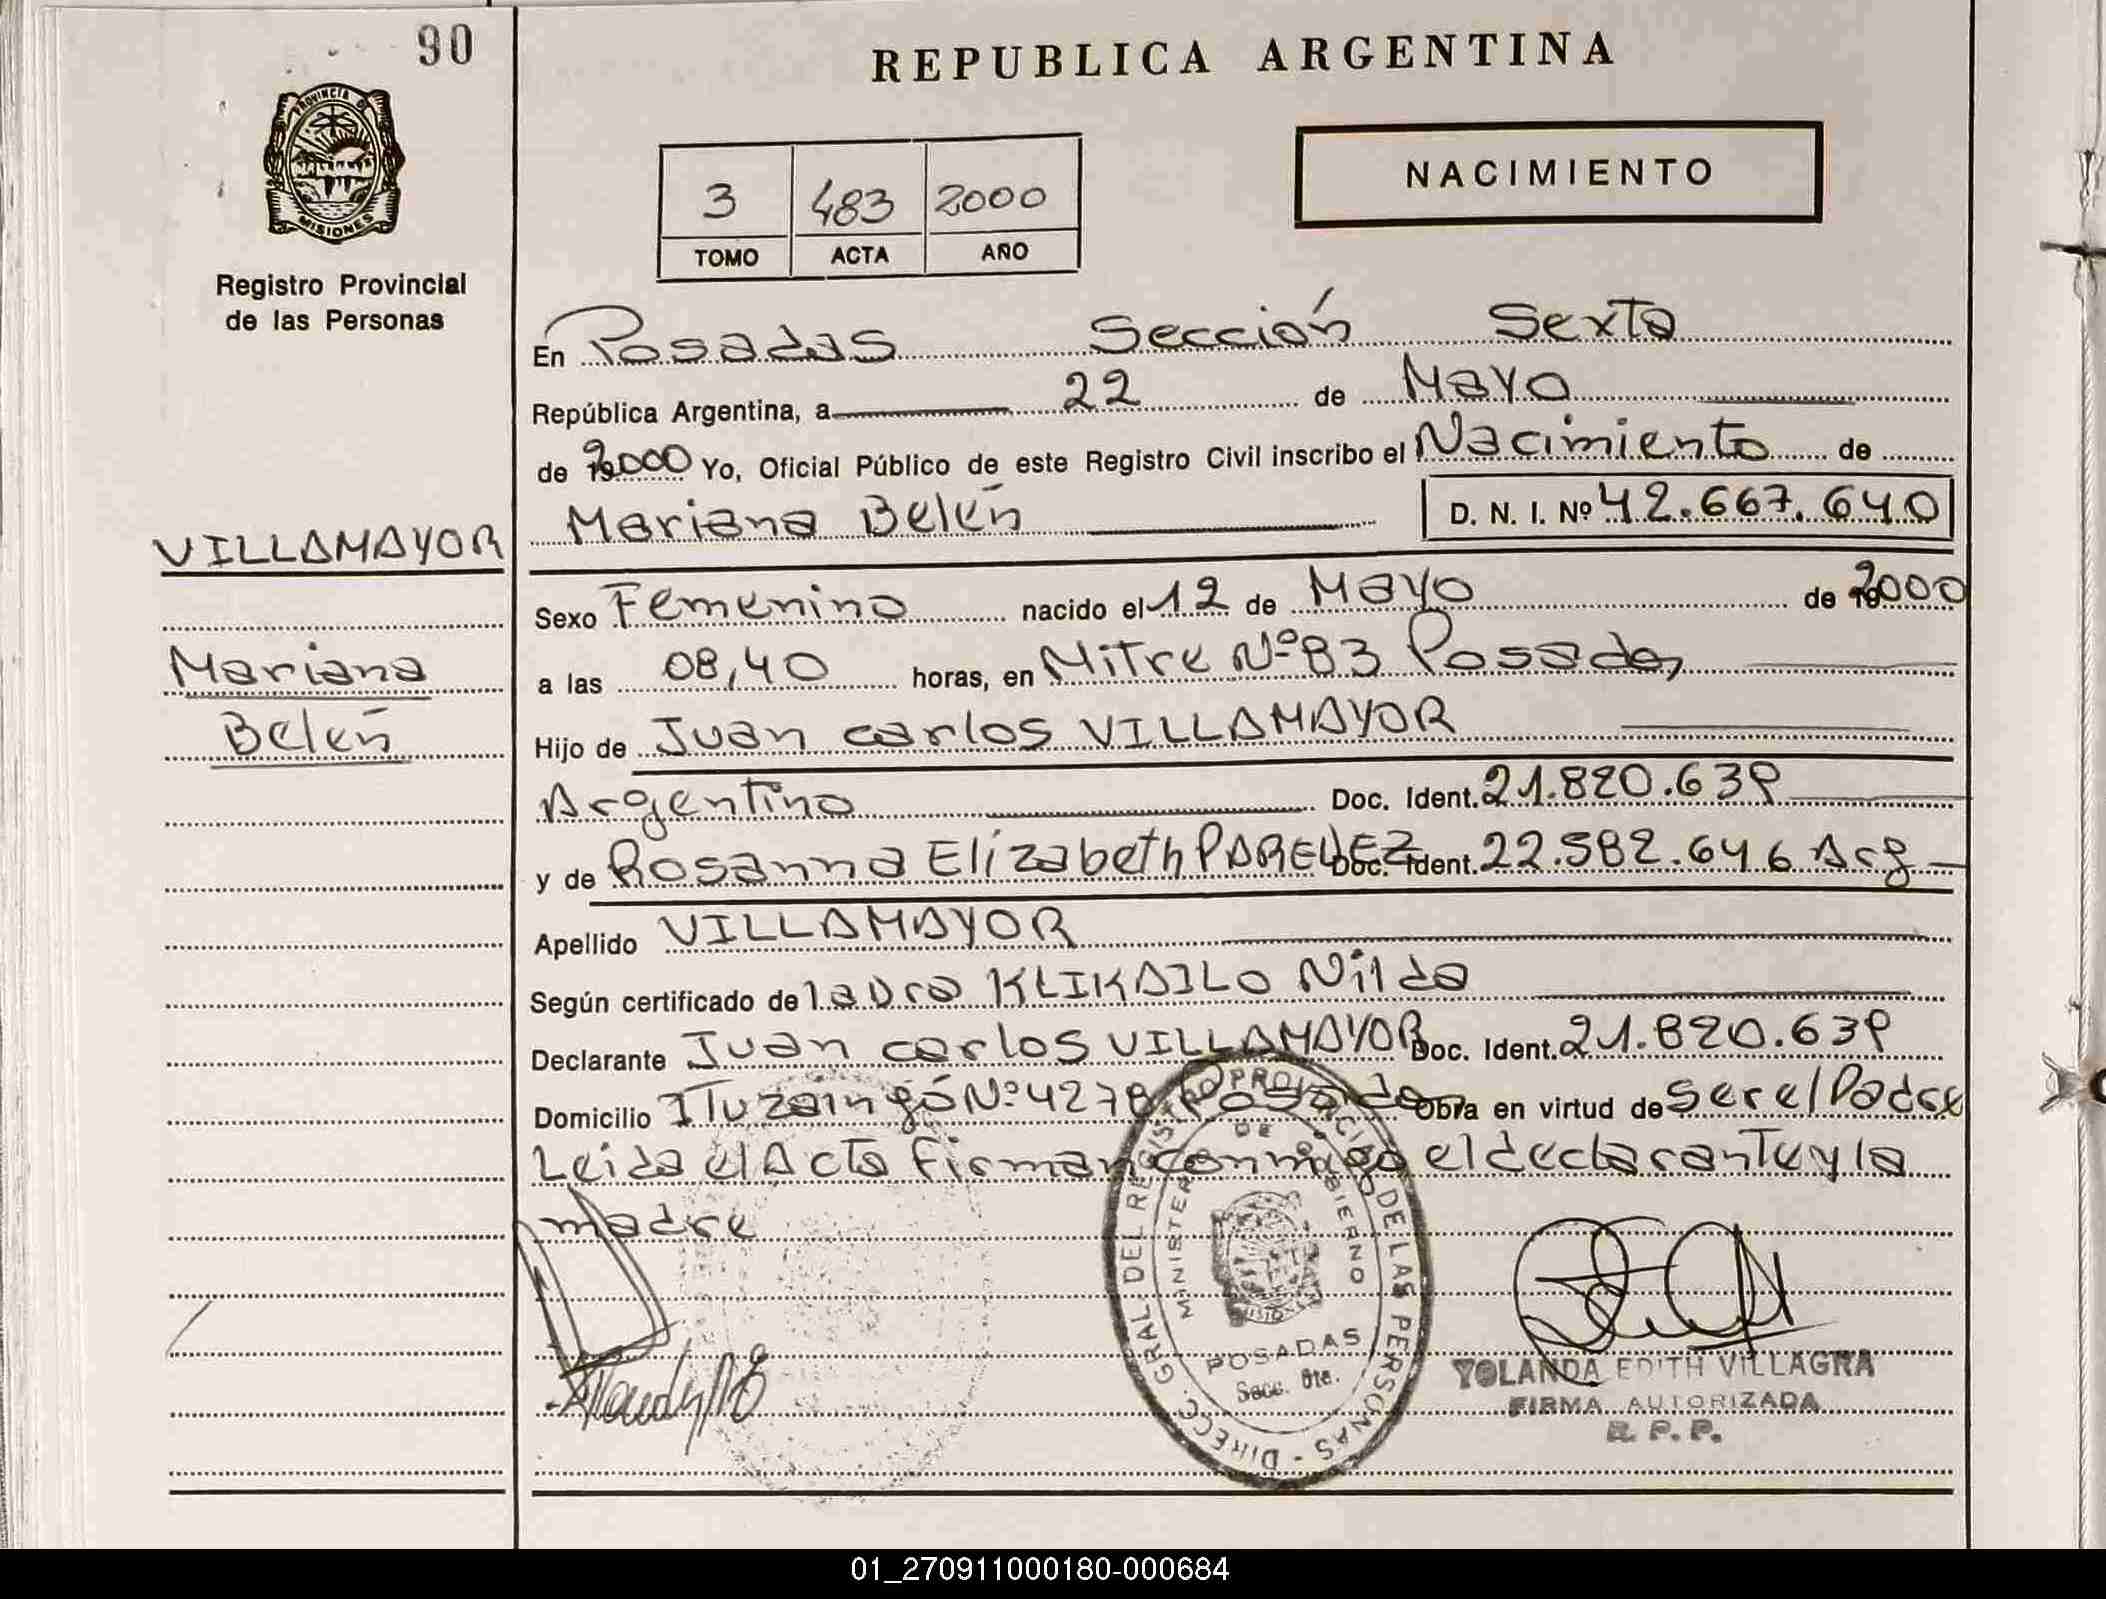 90
REPUBLICA ARGENTINA
PROVINCIA DE
MISIONES
Registro Provincial
de las Personas
3 483 2000
TOMO ACTA AÑO
NACIMIENTO
En Posadas Sección Sexta
República Argentina, a 22 de Mayo
de 2000 Yo, Oficial Público de este Registro Civil inscribo el Nacimiento de
Mariana Belén D. N. I. Nº 42.667.640
VILLAMAYOR
Mariana
Belén
Sexo Femenino nacido el 12 de Mayo de 2000
a las 08,40 horas, en Mitre Nº 83 Posadas
Hijo de Juan carlos VILLAMAYOR
Argentino Doc. Ident. 21.820.639
y de Rosanna Elizabeth Doc. Ident. 22.582.646 Arg
Apellido VILLAMAYOR
Según certificado de la Dra KLIKAILO Nilda
Declarante Juan carlos VILLAMAYOR Doc. Ident. 21.820.639
Domicilio ITuzaingó Nº 4278 Posadas Obra en virtud de ser el Padre
Leida el Acta firman conmigo el declarante y la
madre
DIRECC. GRAL. DEL REGISTRO PROVINCIAL DE LAS PERSONAS
MINISTERIO DE GOBIERNO
POSADAS
Secc. 6ta.
YOLANDA EDITH VILLAGRA
FIRMA AUTORIZADA
R. P. P.
01_270911000180-000684